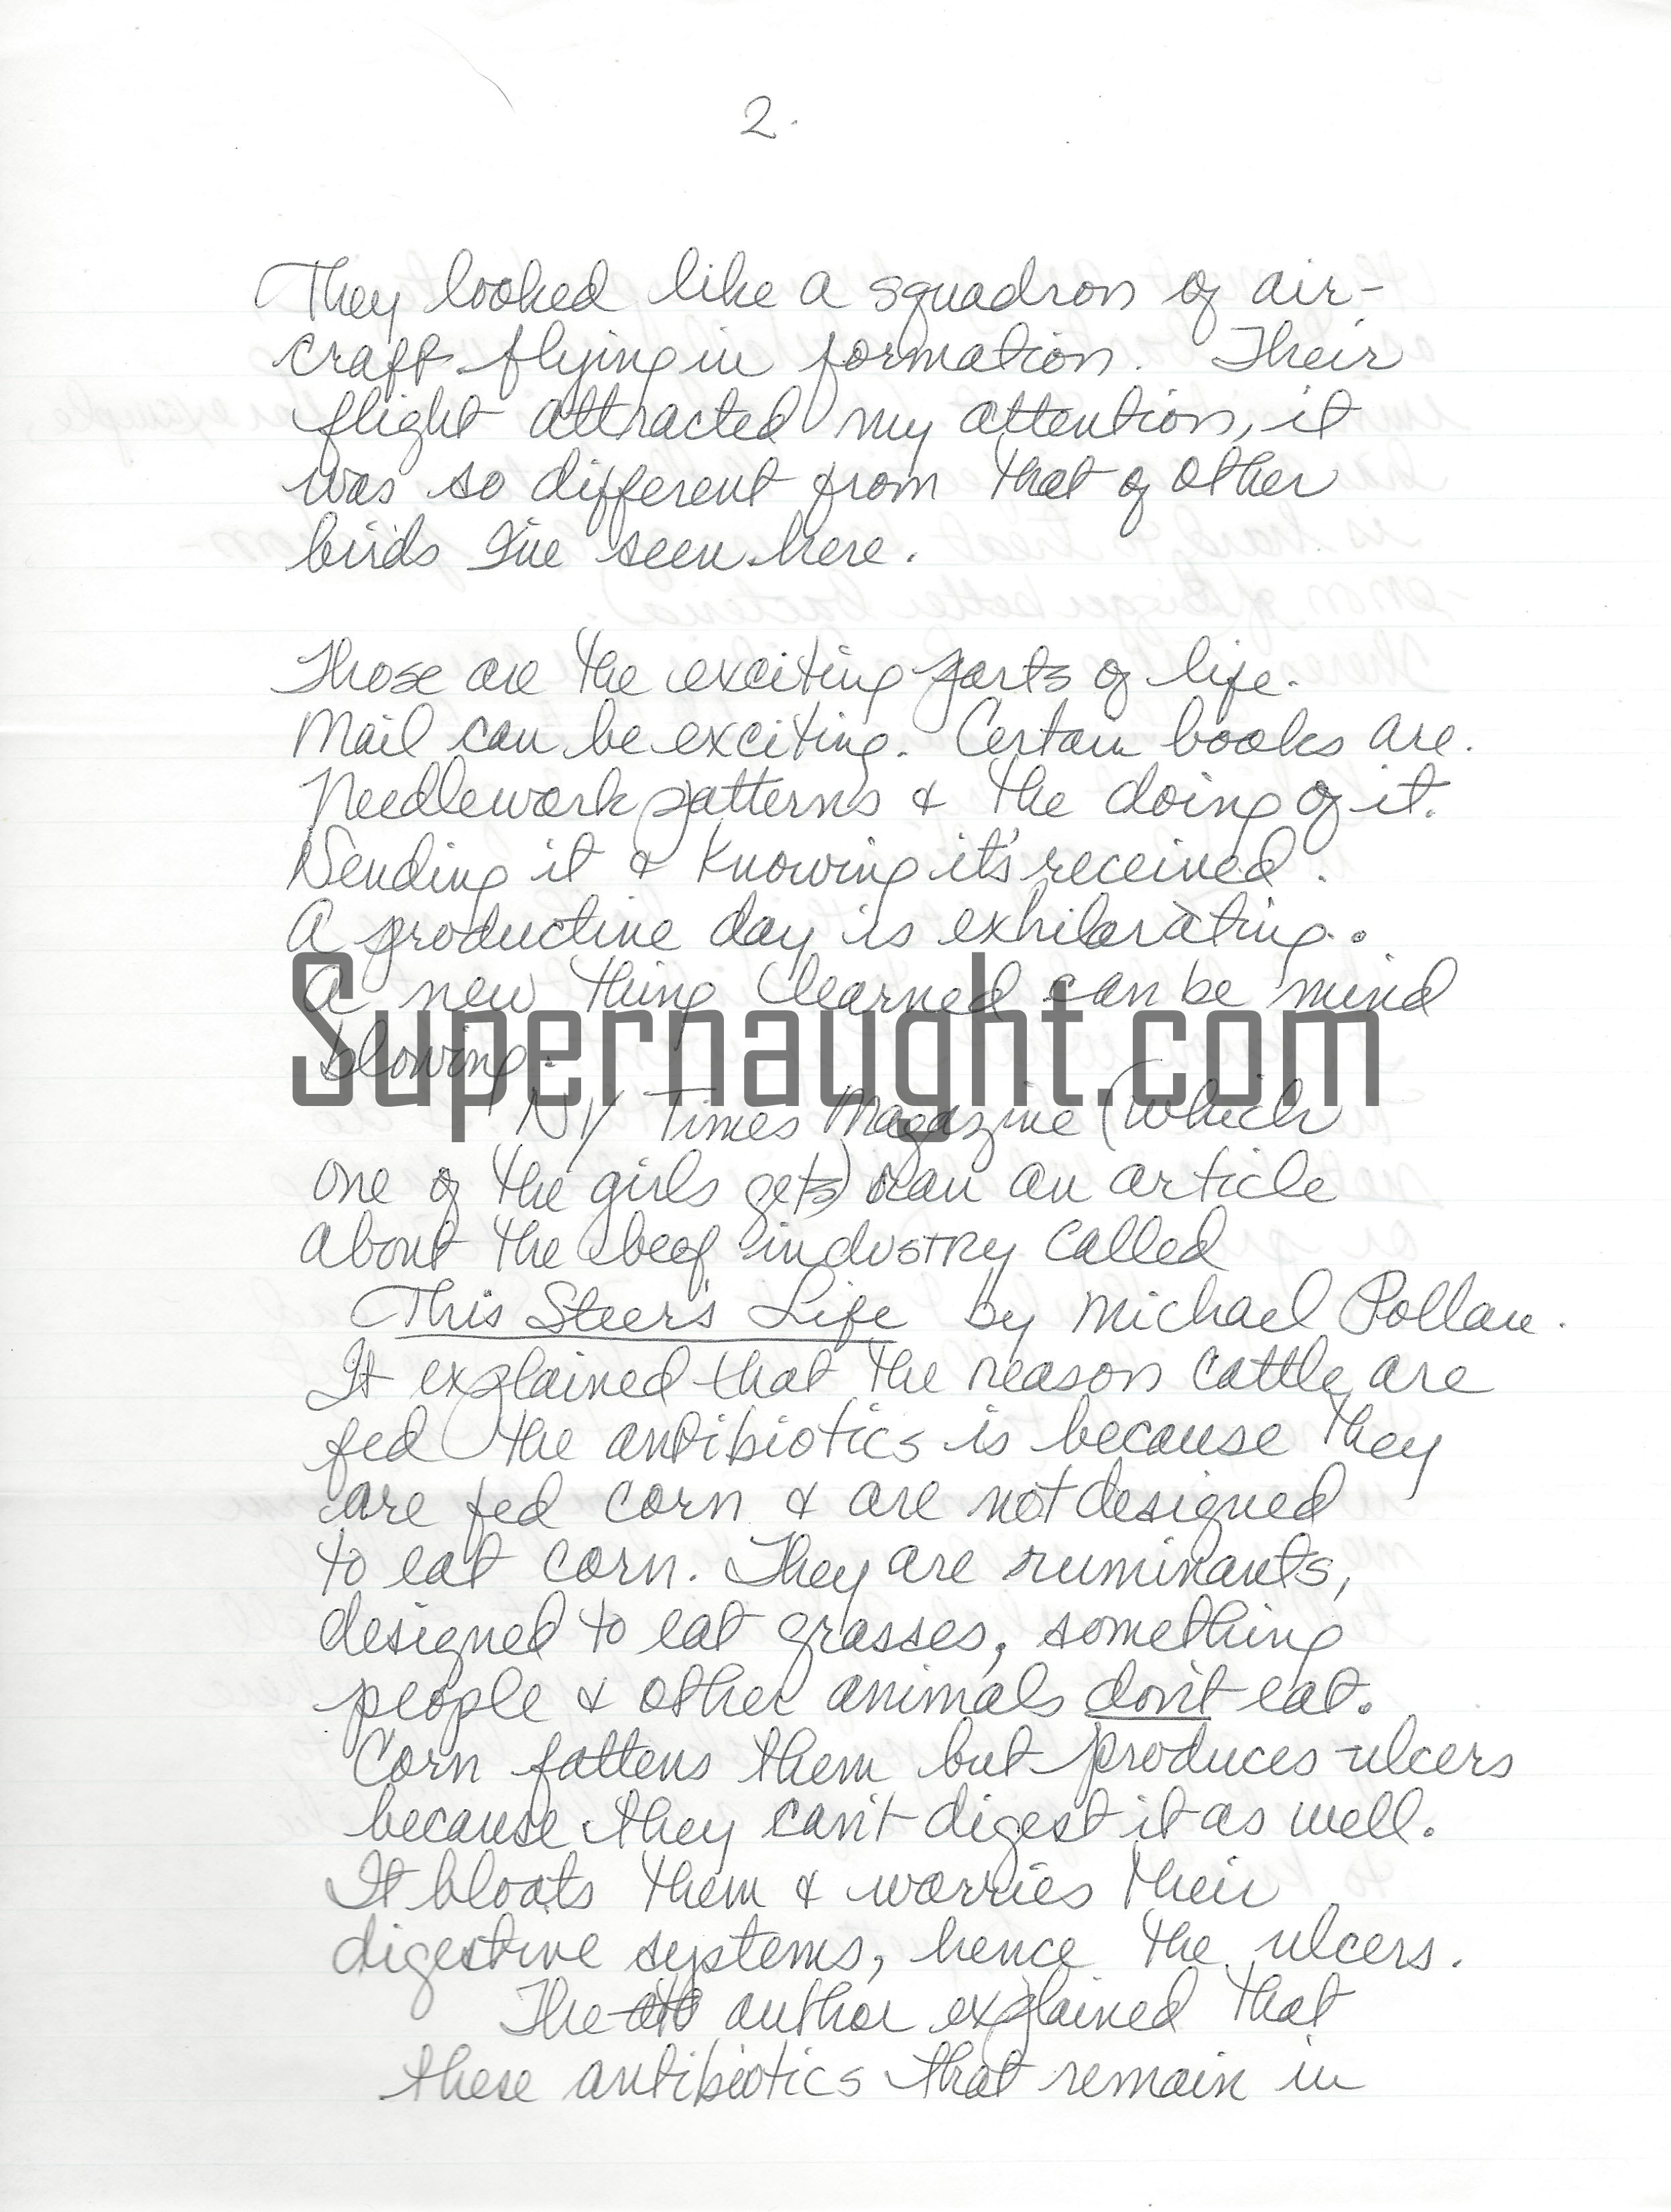 2.
They looked like a squadron of air-
craft flying in formation. Their
flight attracted my attention, it
was so different from that of other
birds I've seen here.
Those are the exciting parts of life.
Mail can be exciting. Certain books are.
Needlework patterns & the doing of it.
Sending it & knowing it's received.
A productive day is exhilarating.
A new thing learned can be mind
blowing.
Supernaught.com
NY Times Magazine (which
one of the girls gets) ran an article
about the beef industry called
This Steer's Life by Michael Pollan.
It explained that the reason cattle are
fed the antibiotics is because they
are fed corn & are not designed
to eat corn. They are ruminants,
designed to eat grasses, something
people & other animals don't eat.
Corn fattens them but produces ulcers
because they can't digest it as well.
It bloats them & worries their
digestive systems, hence the ulcers.
The author explained that
these antibiotics that remain in